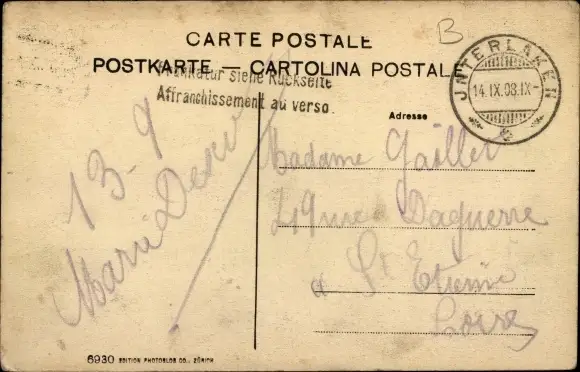 B
CARTE POSTALE
POSTKARTE — CARTOLINA POSTALE
Frankatur siehe Rückseite
Affranchissement au verso.
JNTERLAKEN
14.IX.08.IX-
Adresse
13-9
Marie
Madame Gaillet
49 rue Daguerre
à St Etienne
Loire
6930 EDITION PHOTOGLOB CO., ZÜRICH